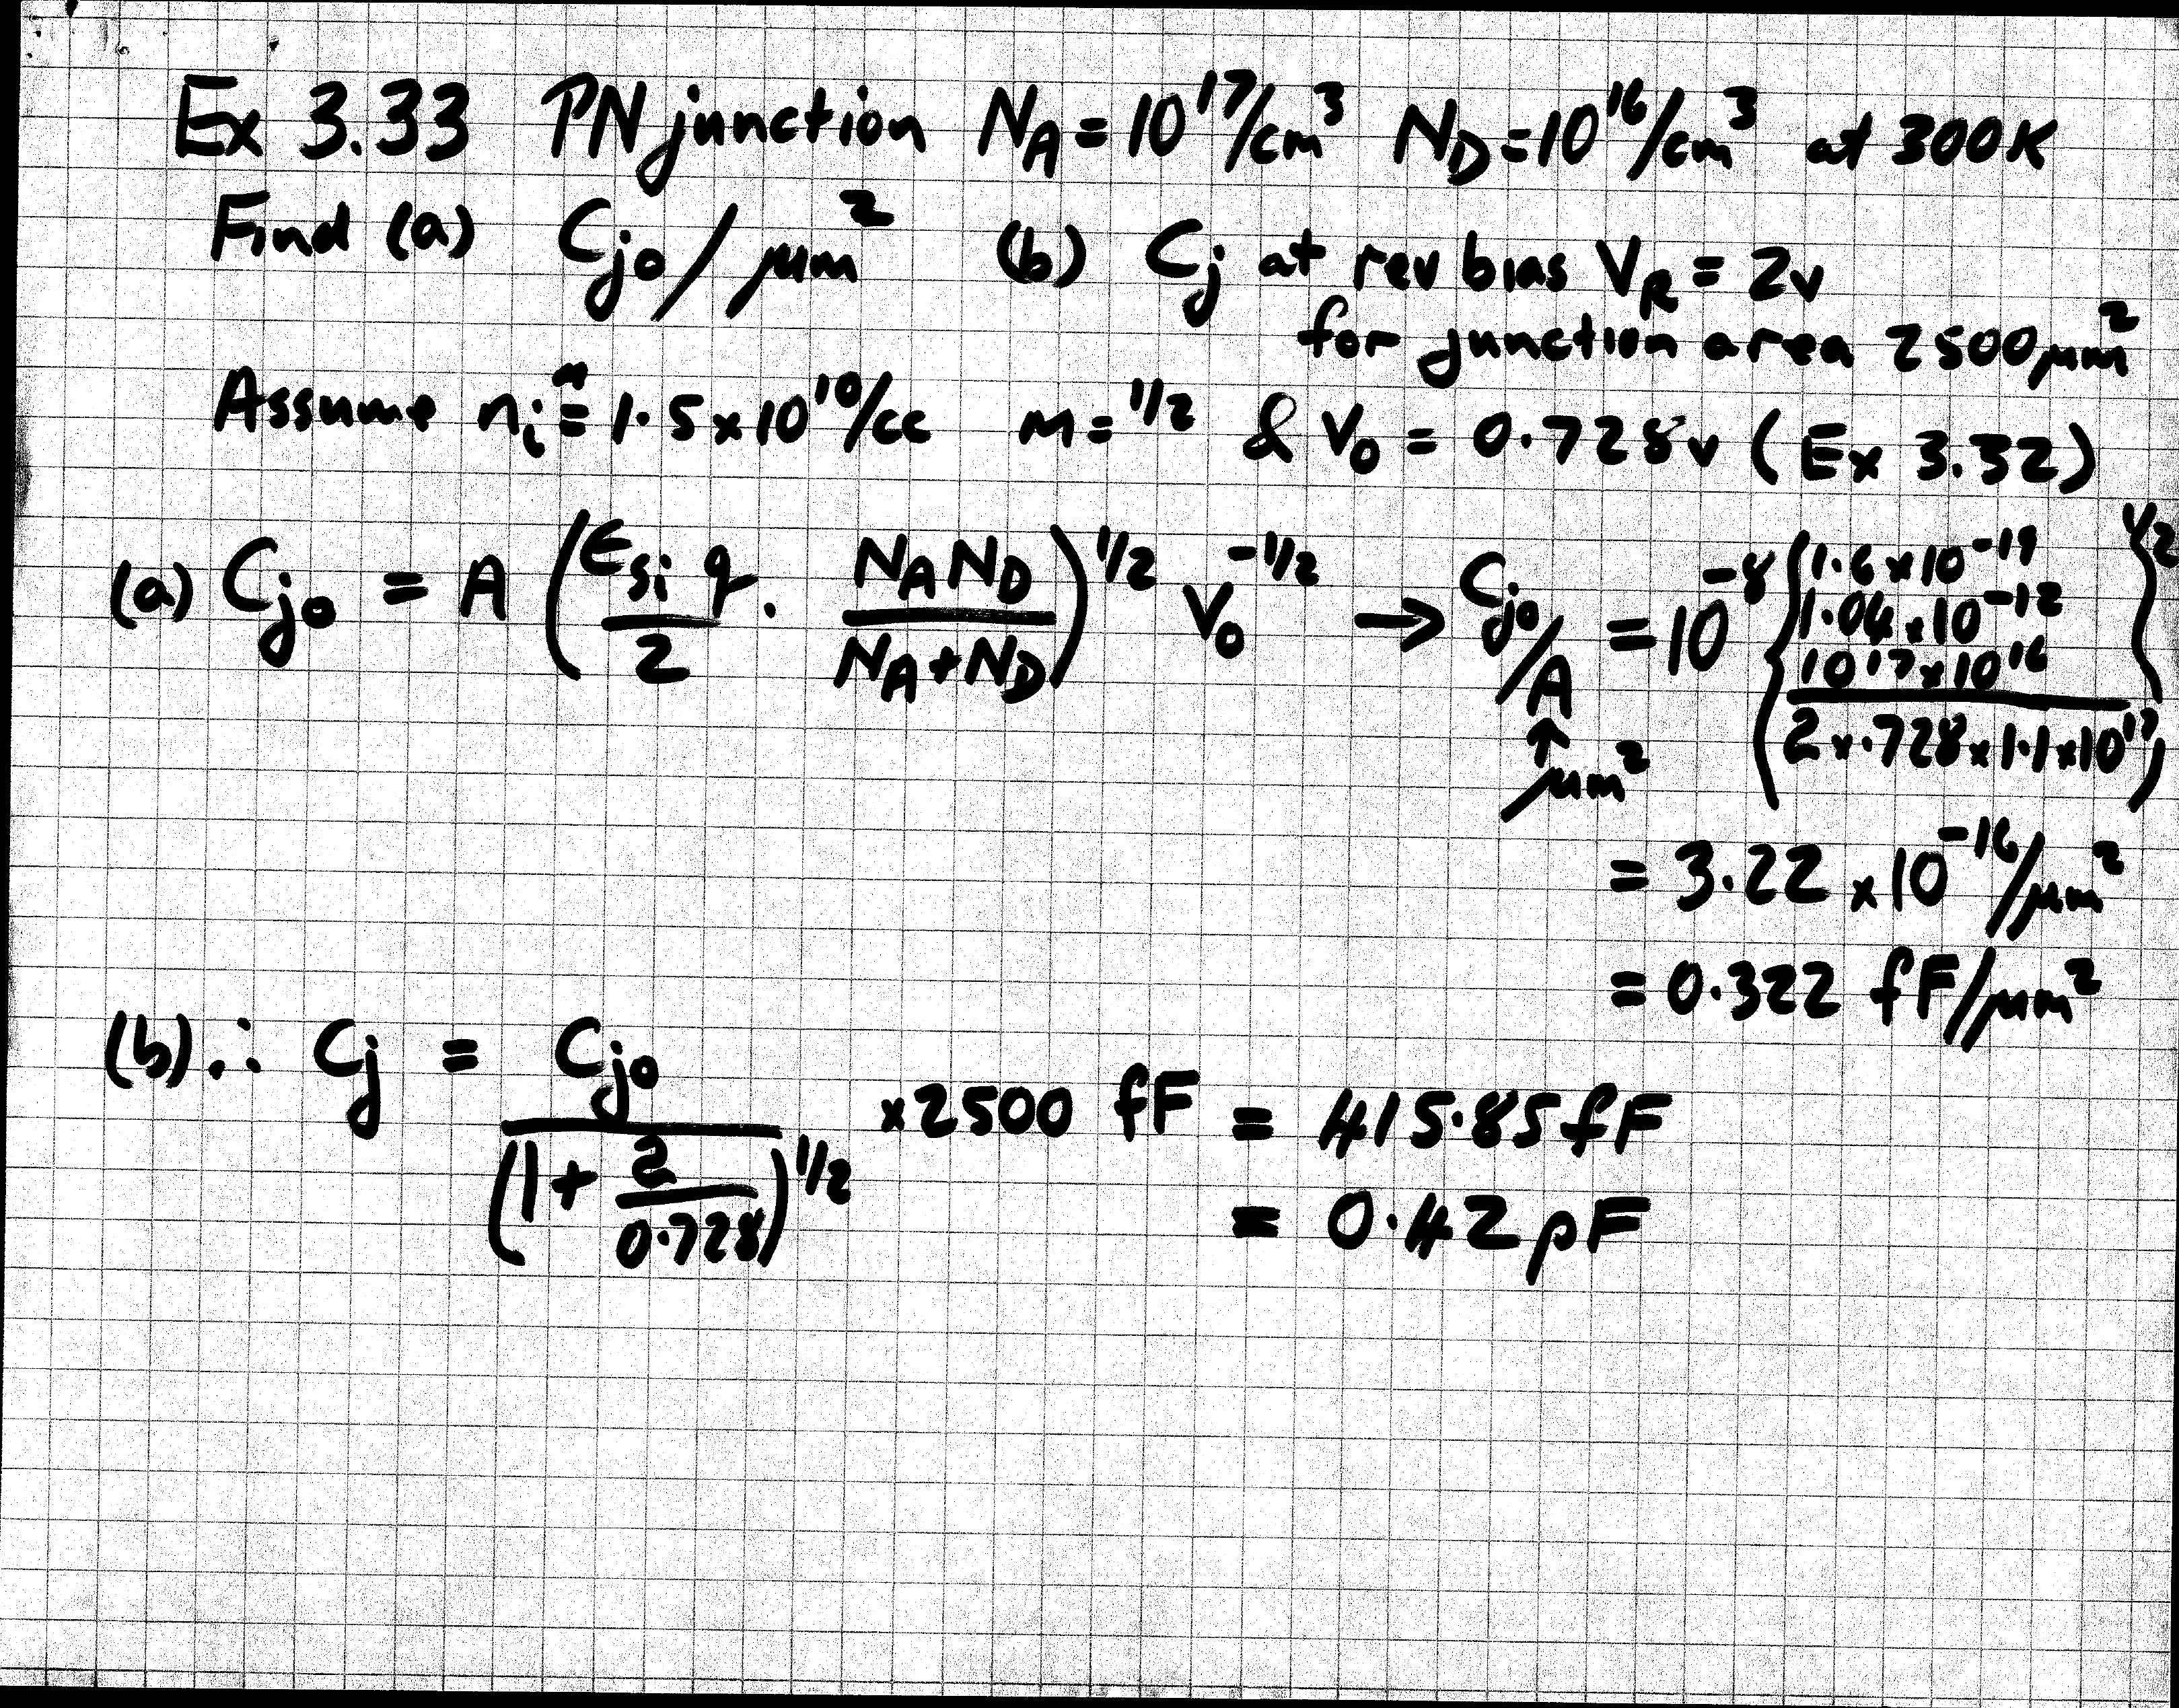 Ex 3.33 PN junction N_A = 10^17/cm^3 N_D = 10^16/cm^3 at 300K
Find (a) C_jo/μm^2 (b) C_j at rev bias V_R = 2v
for junction area 2500μm^2
Assume n_i = 1.5 x 10^10/cc m = 1/2 & V_0 = 0.728v (Ex 3.32)
(a) C_jo = A (ε_si q/2 · N_A N_D/(N_A + N_D))^1/2 V_0^-1/2 → C_jo/A = 10^-8 {1.6 x 10^-19 1.04 x 10^-12 10^17 x 10^16 / 2 x .728 x 1.1 x 10^17}^1/2
↑ μm^2
= 3.22 x 10^-16/μm^2
= 0.322 fF/μm^2
(b) ∴ C_j = C_jo/(1 + 2/0.728)^1/2 x 2500 fF = 415.85 fF
= 0.42 pF